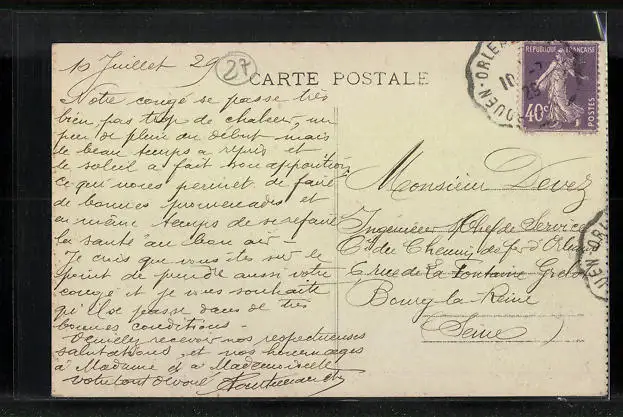 10 Juillet 29
27
CARTE POSTALE
Notre congé se passe très
bien pas trop de chaleur, un
peu de pluie au début mais
le beau temps a repris et
le soleil a fait son apparition
ce qui nous permet de faire
de bonnes promenades et
en même temps de se refaire
la santé au bon air -
Je crois que vous êtes sur le
point de prendre aussi votre
congé et je vous souhaite
qu'il se passe dans de très
bonnes conditions -
recevoir nos respectueuses
salutations, et nos hommages
à Madame et à Mademoiselle
votre tout dévoué
ROUEN-ORLEA
10
29
REPUBLIQUE FRANÇAISE
40c
POSTES
Monsieur Devez
Ingénieur Chef de Service
Cie du Chemin de fer d'Orléans
rue de La Fontaine
Bourg-la-Reine
(Seine)
UEN-ORL